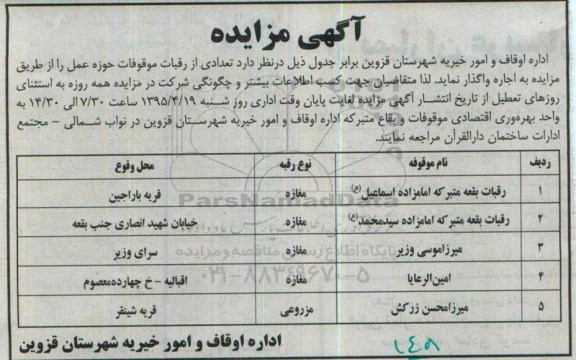 آگهی مزایده
اداره اوقاف و امور خیریه شهرستان قزوین برابر جدول ذیل درنظر دارد تعدادی از رقبات موقوفات حوزه عمل را از طریق
مزایده به اجاره واگذار نماید. لذا متقاضیان جهت کسب اطلاعات بیشتر و چگونگی شرکت در مزایده همه روزه به استثنای
روزهای تعطیل از تاریخ انتشار آگهی مزایده لغایت پایان وقت اداری روز شنبه ۱۳۹۵/۴/۱۹ ساعت ۷/۳۰ الی ۱۴/۳۰ به
واحد بهره‌وری اقتصادی موقوفات و بقاع متبرکه اداره اوقاف و امور خیریه شهرستان قزوین در نواب شمالی - مجتمع
ادارات ساختمان دارالقرآن مراجعه نمایند.
ردیف نام موقوفه نوع رقبه محل وقوع
۱ رقبات بقعه متبرکه امامزاده اسماعیل (ع) مغازه قریه باراجین
۲ رقبات بقعه متبرکه امامزاده سیدمحمد (ع) مغازه خیابان شهید انصاری جنب بقعه
۳ میرزاموسی وزیر مغازه سرای وزیر
۴ امین‌الرعایا مغازه اقبالیه - خ چهارده‌معصوم
۵ میرزامحسن زرکش مزروعی قریه شینقر
اداره اوقاف و امور خیریه شهرستان قزوین
ParsNamadData
پایگاه اطلاع رسانی مناقصه و مزایده
۰۲۱-۸۸۳۴۹۶۷۰-۵